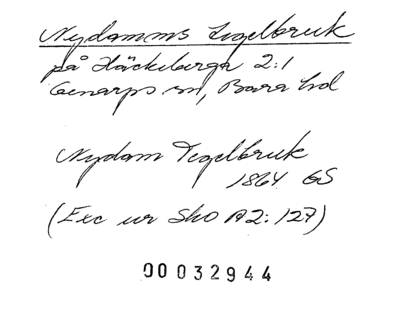 Nydamms Tegelbruk
på Häckeberga 2:1
Genarps sn, Bara hd
Nydam Tegelbruk
1864 GS
(Exc ur Sko A2:127)
00032944